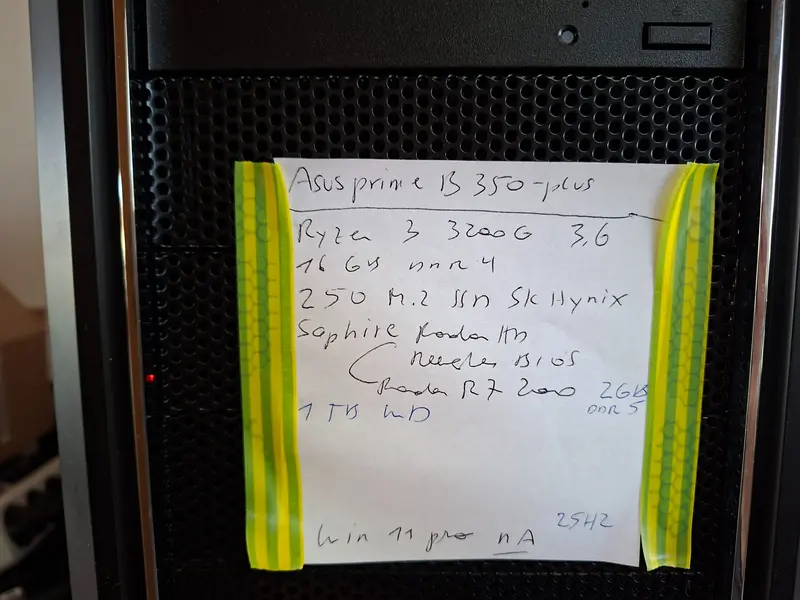 Asus prime B 350-plus
Ryzen 3 3200G 3,6
16 GB DDR 4
250 M.2 SSD SK Hynix
Saphire Radon HD
BIOS
Radon R7 200 2GB
DDR 5
1 TB WD
Win 11 pro nA 25H2